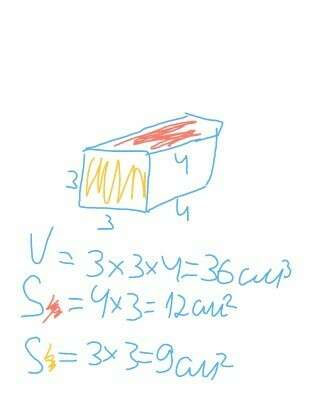 4
3
4
3
V = 3×3×4=36см³
S = 4×3=12см²
S = 3×3=9см²